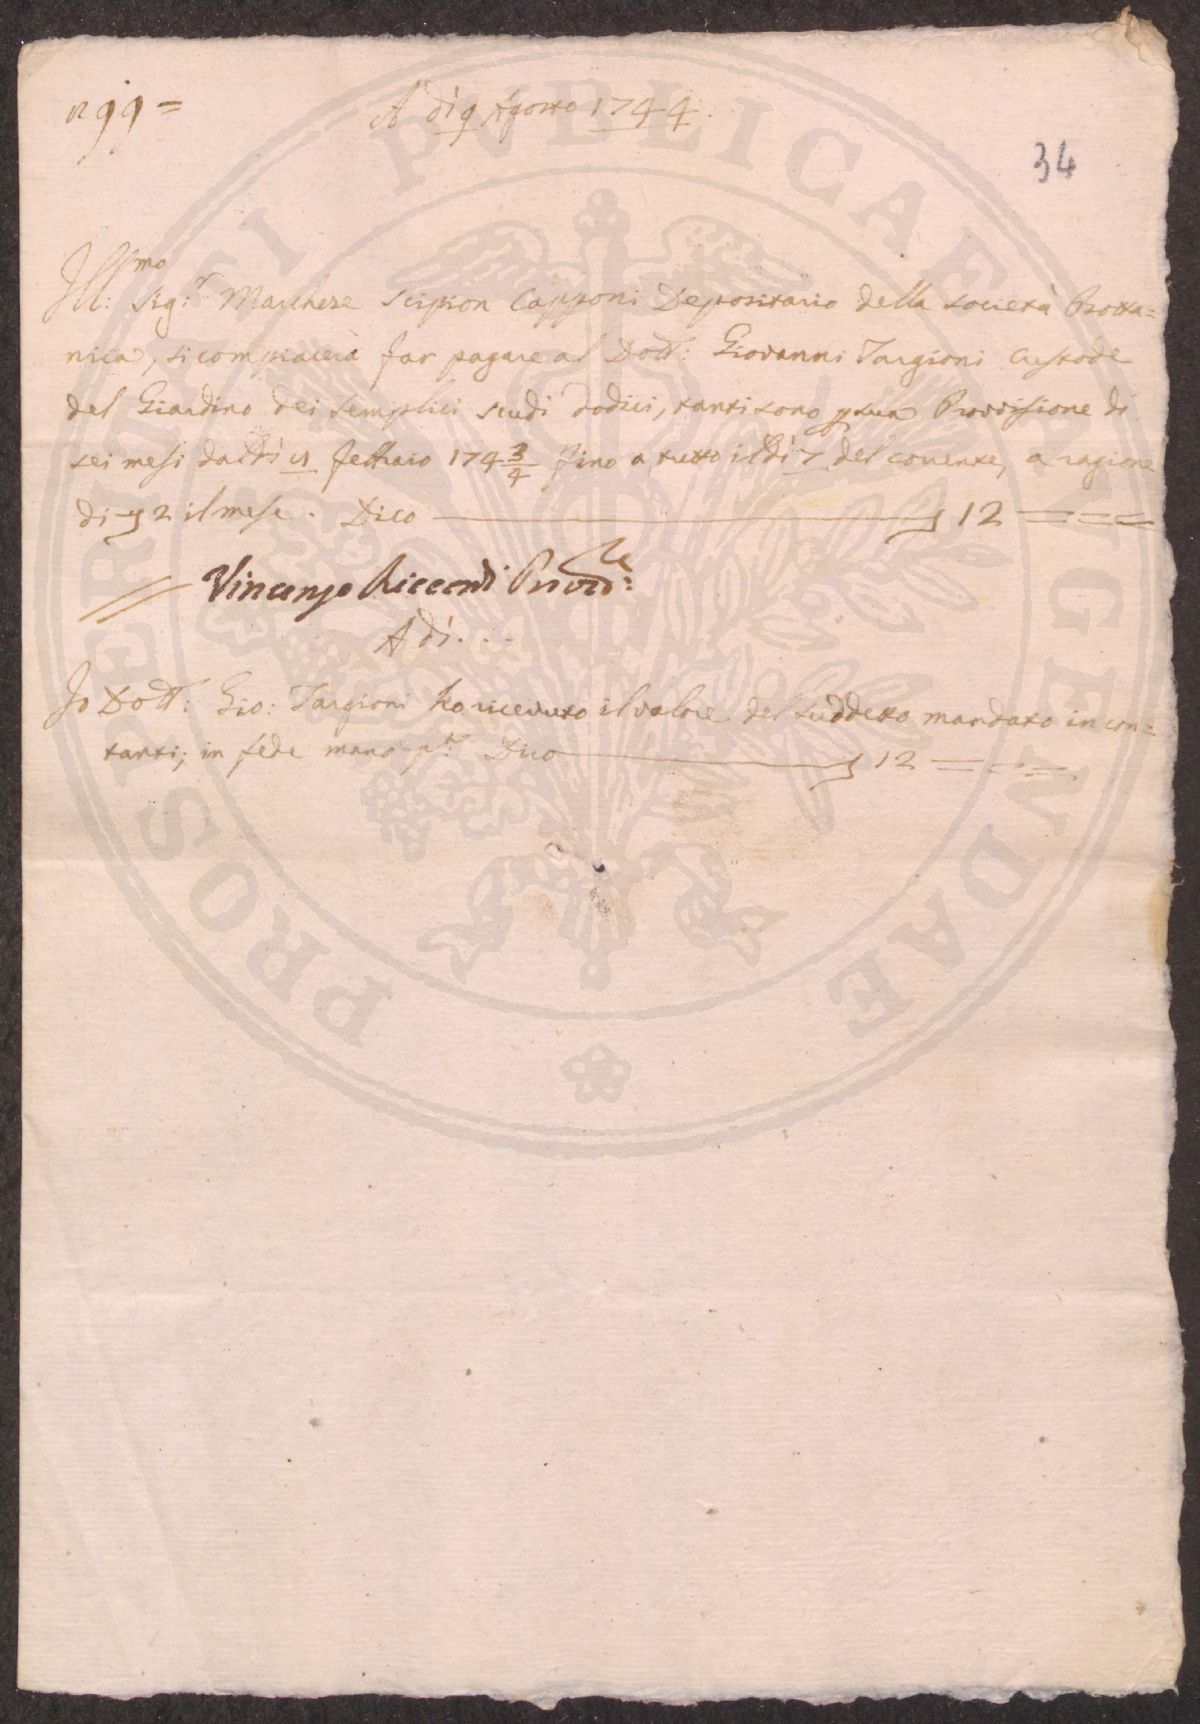 n 99 =
A dì 9 Agosto 1744.
34
Ill:mo Sig:r Marchese Scipion Capponi Depositario della Società Botta=
nica, si compiacerà far pagare al Dott: Giovanni Targioni Custode
del Giardino dei Semplici scudi dodici, tanti sono p sua Provvisione di
sei mesi dal dì febbraio 174 3/4 fino a tutto il dì 7 del corrente, a ragione
di 2 il mese. Dico 12 = = =
Vincenzo Riccardi Provv.re
A dì . . .
Io Dott: Gio: Targioni ho ricevuto il valore del suddetto mandato in con=
tanti; in fede mano p.a Dico 12 = = =
PROSPERITATI PVBLICAE AVGENDAE